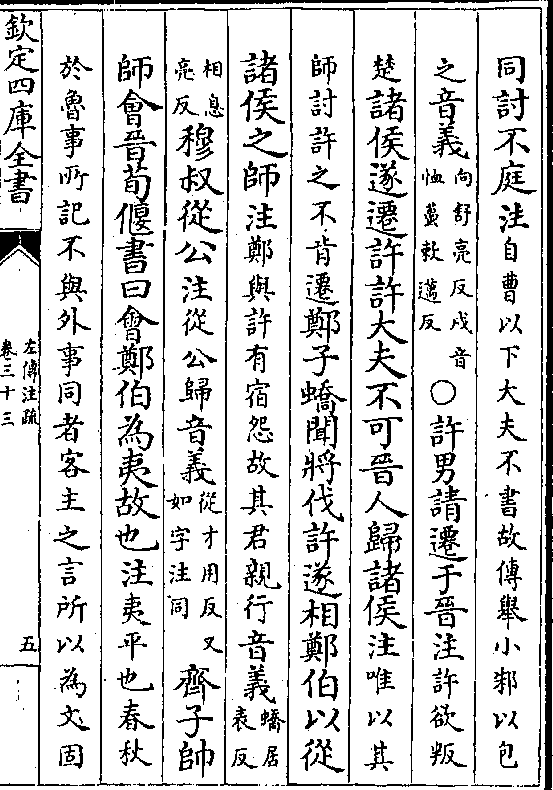 同討不庭注自曹以下大夫不書故傳舉小邾以包
之音義向舒亮反戍音恤蠆敕邁反○許男請遷于晉注許欲叛
楚諸侯遂遷許許大夫不可晉人歸諸侯注唯以其
師討許之不肯遷鄭子蟜聞將伐許遂相鄭伯以從
諸侯之師注鄭與許有宿怨故其君親行音義蟜居表反
相息亮反穆叔從公注從公歸音義從才用反又如字注同齊子帥
師會晉荀偃書曰會鄭伯為夷故也注夷平也春秋
於魯事所記不與外事同者客主之言所以為文固
欽定四庫全書
左傳注疏
卷三十三
五